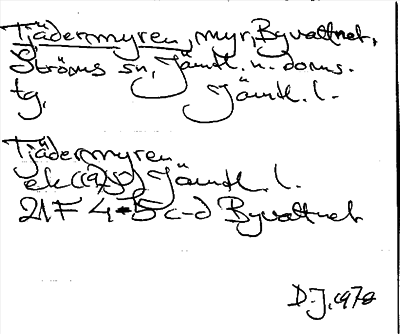 Tjädermyren, myr, Byvattnet,
Ströms sn, Jämtl. n. doms.
tg, Jämtl. l.
Tjädermyren
ek (1959) Jämtl. l.
21F 4-5 c-d Byvattnet
D.J. 1978